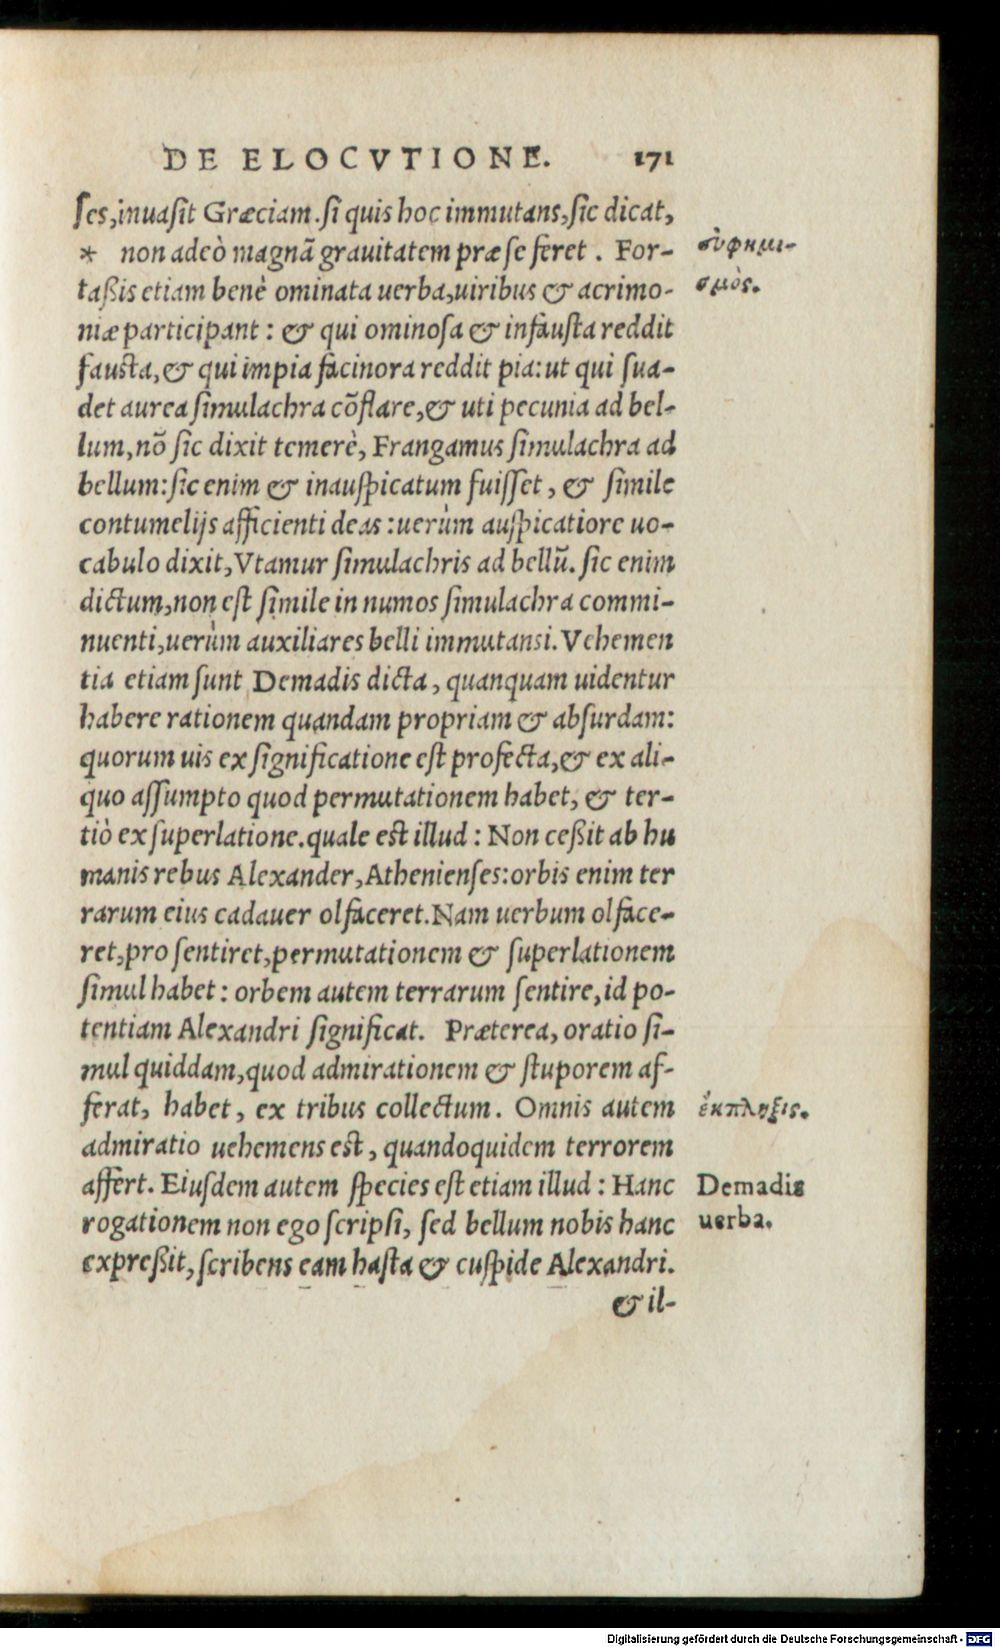 DE ELOCVTIONE. 171
ſes, inuaſit Græciam. ſi quis hoc immutans, ſic dicat,
* non adeò magnã grauitatem præ ſe feret. For-
taßis etiam benè ominata uerba, uiribus & acrimo-
niæ participant: & qui ominoſa & infauſta reddit
fauſta, & qui impia facinora reddit pia: ut qui ſua-
det aurea ſimulachra cõflare, & uti pecunia ad bel-
lum, nõ ſic dixit temerè, Frangamus ſimulachra ad
bellum: ſic enim & inauſpicatum fuiſſet, & ſimile
contumelijs afficienti deas: uerùm auſpicatiore uo-
cabulo dixit, Vtamur ſimulachris ad bellũ. ſic enim
dictum, non eſt ſimile in numos ſimulachra commi-
nuenti, uerùm auxiliares belli immutansi. Vehemen
tia etiam ſunt Demadis dicta, quanquam uidentur
habere rationem quandam propriam & abſurdam:
quorum uis ex ſignificatione eſt profecta, & ex ali-
quo aſſumpto quod permutationem habet, & ter-
tiò ex ſuperlatione. quale eſt illud: Non ceßit ab hu
manis rebus Alexander, Athenienſes: orbis enim ter
rarum eius cadauer olfaceret. Nam uerbum olface-
ret, pro ſentiret, permutationem & ſuperlationem
ſimul habet: orbem autem terrarum ſentire, id po-
tentiam Alexandri ſignificat. Præterea, oratio ſi-
mul quiddam, quod admirationem & ſtuporem af-
ferat, habet, ex tribus collectum. Omnis autem
admiratio uehemens eſt, quandoquidem terrorem
affert. Eiuſdem autem ſpecies eſt etiam illud: Hanc
rogationem non ego ſcripſi, ſed bellum nobis hanc
expreßit, ſcribens eam haſta & cuſpide Alexandri.
& il-
εὐφημι-
σμὸς.
ἔκπληξις.
Demadis
uerba.
Digitalisierung gefördert durch die Deutsche Forschungsgemeinschaft - DFG